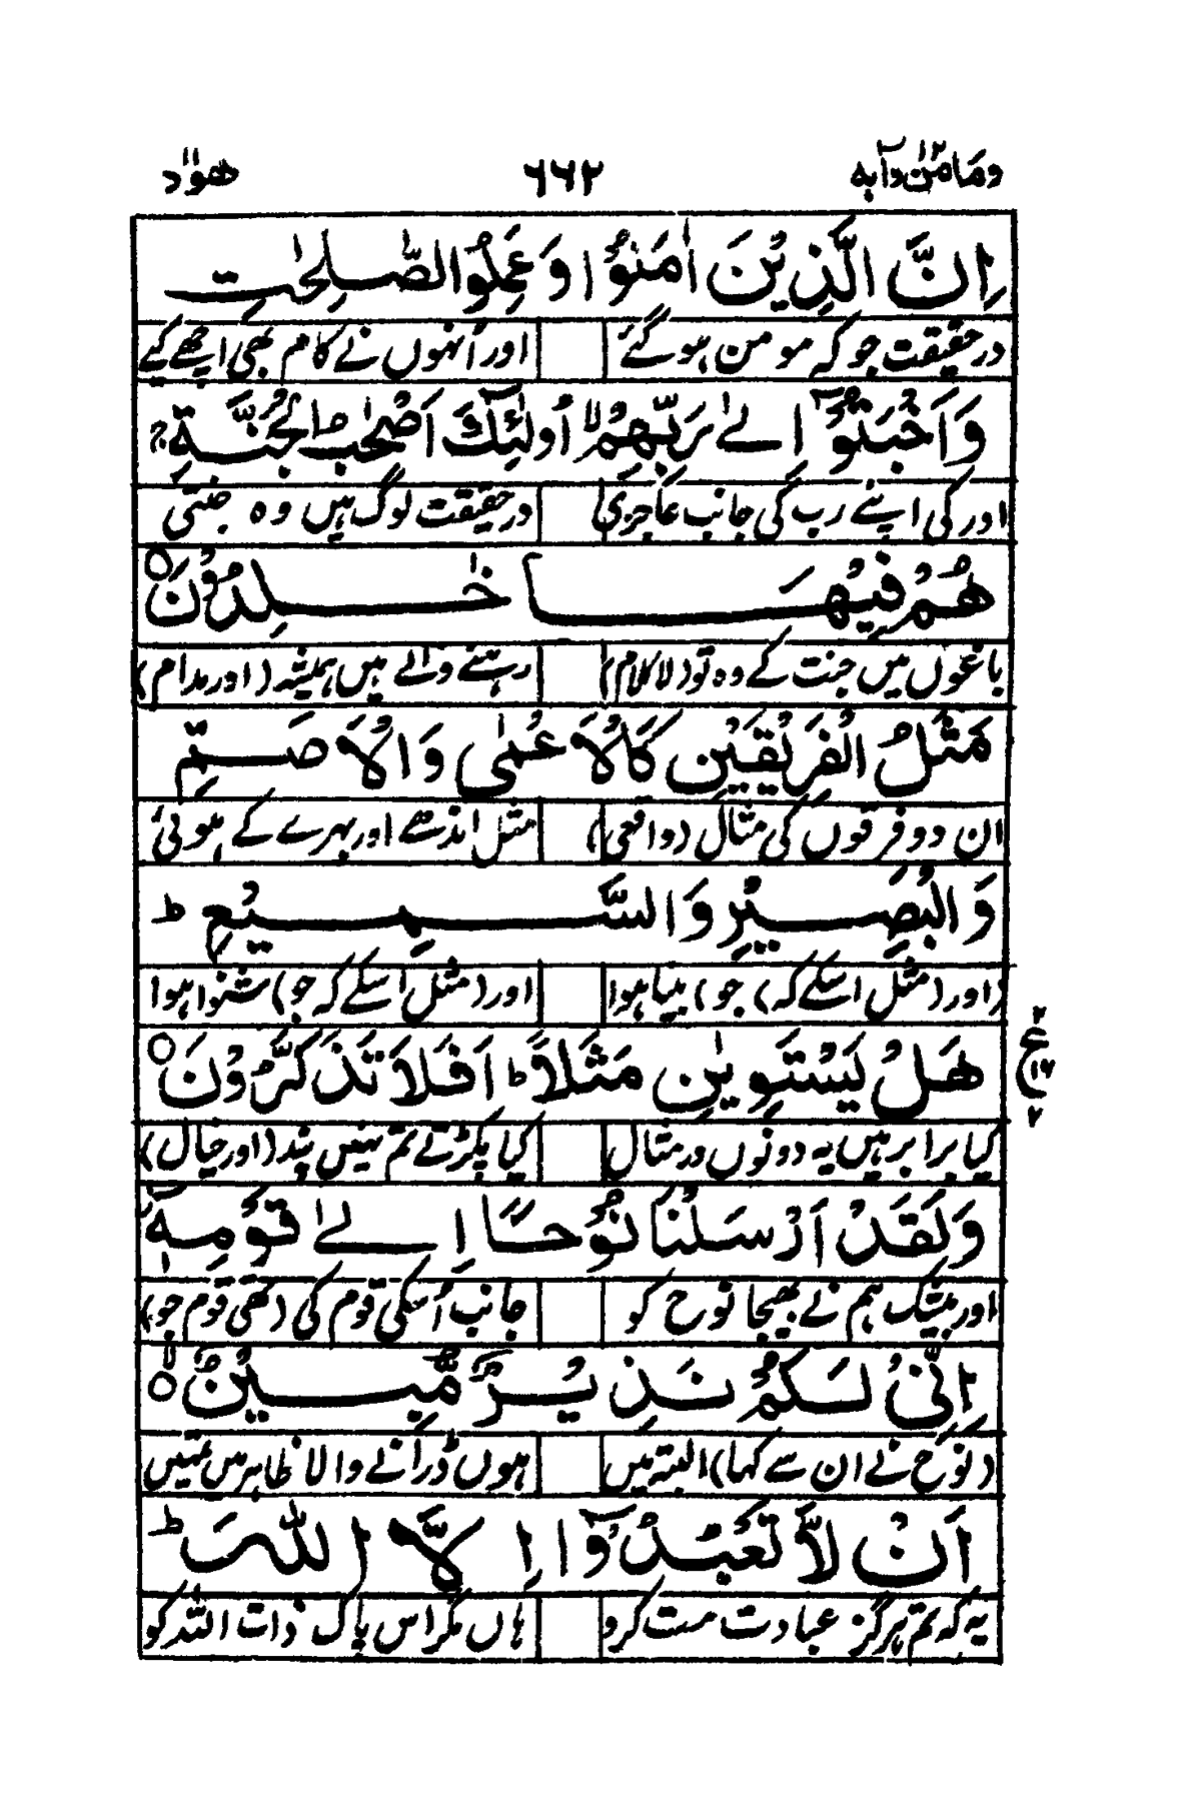 ومامن دآبه ۱۲ ۶۶۲ ھود ۱۱
اِنَّ الَّذِيْنَ اٰمَنُوْا وَعَمِلُوا الصّٰلِحٰتِ
در حقیقت جو کہ مومن ہو گئے اور اُنہوں نے کام بھی اچھے کیے
وَاَخْبَتُوْٓا اِلٰى رَبِّهِمْ ۙ اُولٰٓئِكَ اَصْحٰبُ الْجَنَّةِ ۚ
اور کی اپنے رب کی جانب عاجزی در حقیقت لوگ ہیں وہ جنتی
هُمْ فِيْهَا خٰلِدُوْنَ ○
باغوں میں جنت کے وہ تو (لا کلام) رہنے والے ہیں ہمیشہ (اور مدام)
مَثَلُ الْفَرِيْقَيْنِ كَالْاَعْمٰى وَالْاَصَمِّ
ان دو فرقوں کی مثال (واقعی) مثل اندھے اور بہرے کے ہوئی
وَالْبَصِيْرِ وَالسَّمِيْعِ ط
(اور (مثل اسکے کہ) جو) بینا ہوا اور (مثل اسکے کہ جو) شنوا ہوا
هَلْ يَسْتَوِيٰنِ مَثَلًا ط اَفَلَا تَذَكَّرُوْنَ ○
ع ۲ ۱۶ ۲
کیا برابر ہیں یہ دونوں در مثال کیا پکڑتے تم نہیں پند (اور خیال)
وَلَقَدْ اَرْسَلْنَا نُوْحًا اِلٰى قَوْمِهٖٓ
اور بیشک ہم نے بھیجا نوح کو جانب اُسکی قوم کی (تھی قوم جو)
اِنِّىْ لَكُمْ نَذِيْرٌ مُّبِيْنٌ ○ ۙ
(نوح نے ان سے کہا) البتہ میں ہوں ڈرانے والا ظاہر میں تمہیں
اَنْ لَّا تَعْبُدُوْٓا اِلَّا اللّٰهَ ط
یہ کہ تم ہرگز عبادت مت کرو ہاں مگر اس پاک ذات اللہ کو